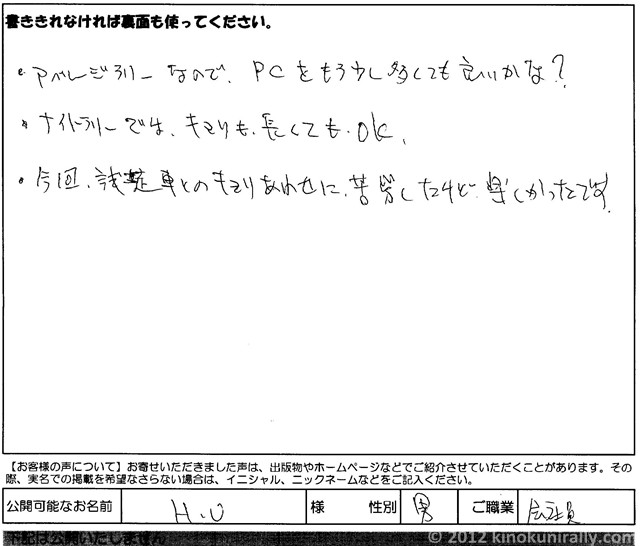 書ききれなければ裏面も使ってください。
・アベレージラリーなので、PCをもう少し多くても良いかな?
・ナイトラリーでは、キョリも、長くても、OK、
・今回、試走車とのキョリあわせに、苦労したけど、楽しかったです
【お客様の声について】お寄せいただきました声は、出版物やホームページなどでご紹介させていただくことがあります。その
際、実名での掲載を希望なさらない場合は、イニシャル、ニックネームなどをご記入ください。
公開可能なお名前 H.U 様 性別 男 ご職業 会社員
下記は公開いたしません
© 2012 kinokunirally.com